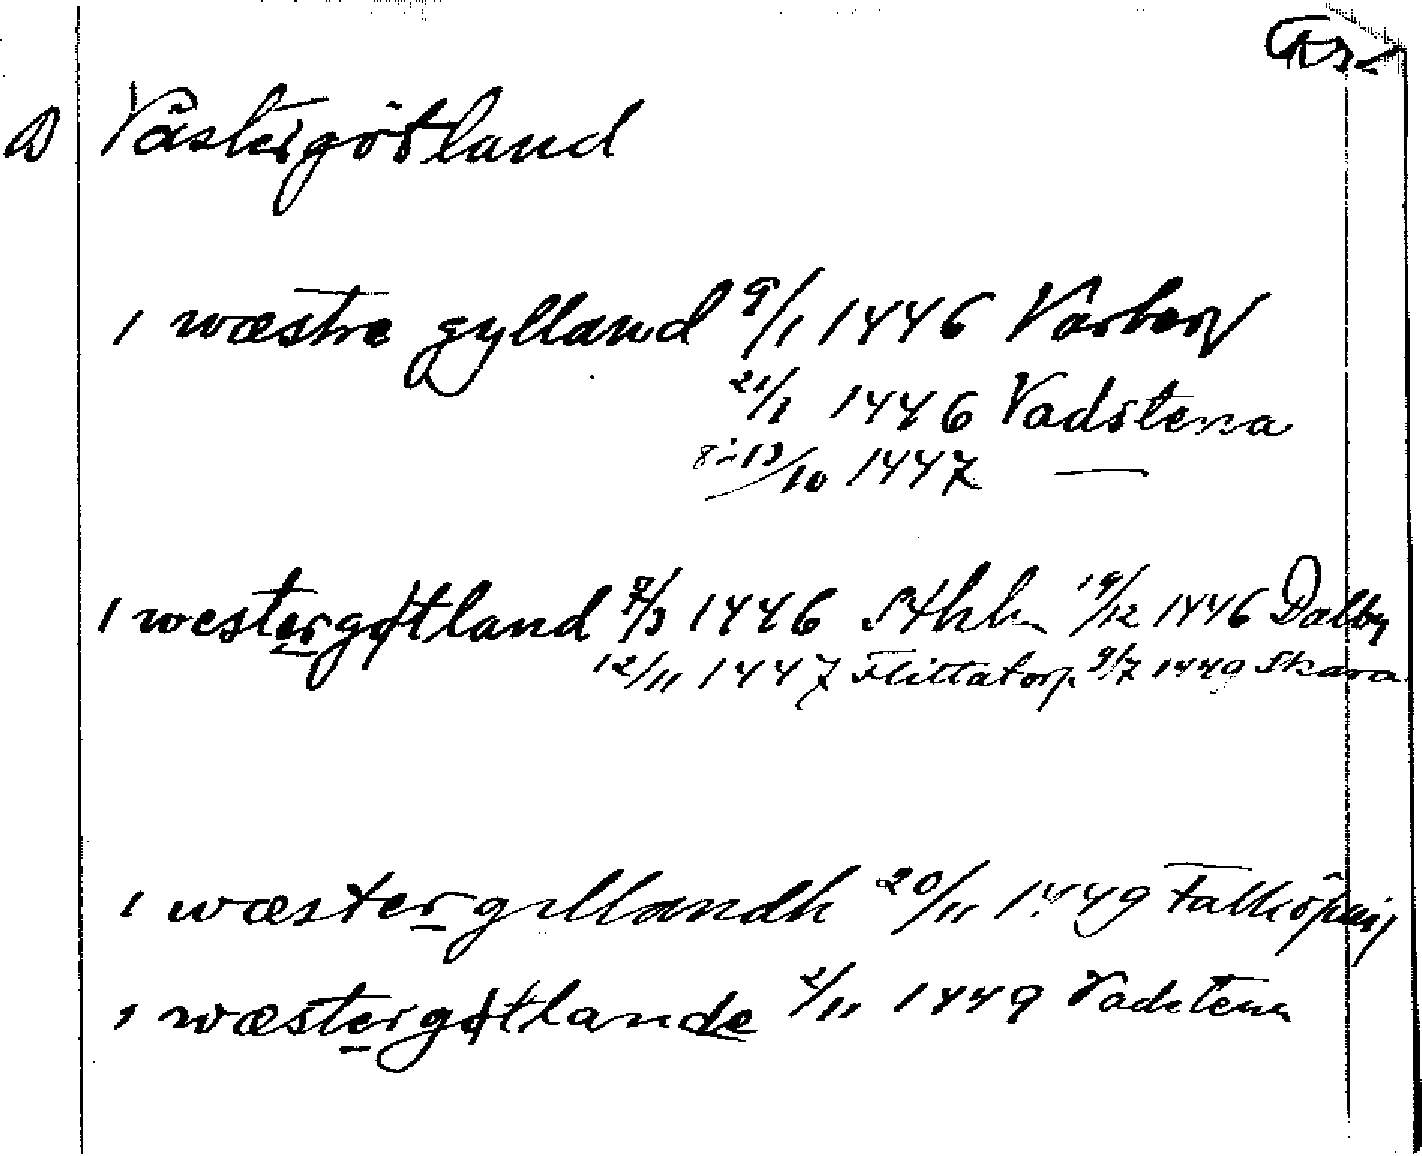 Västergötland
i wæstre gylland 9/1 1446 Varberg
21/1 1446 Vadstena
8-13/10 1447 —
i westergøtland 8/3 1446 Sthlm 19/12 1446 Dalby
12/11 1447 Flittatorp 9/7 1449 Skara
i wæstergillandh 20/11 1449 Falköping
i wæstergøtlande 2/11 1449 Vadstena